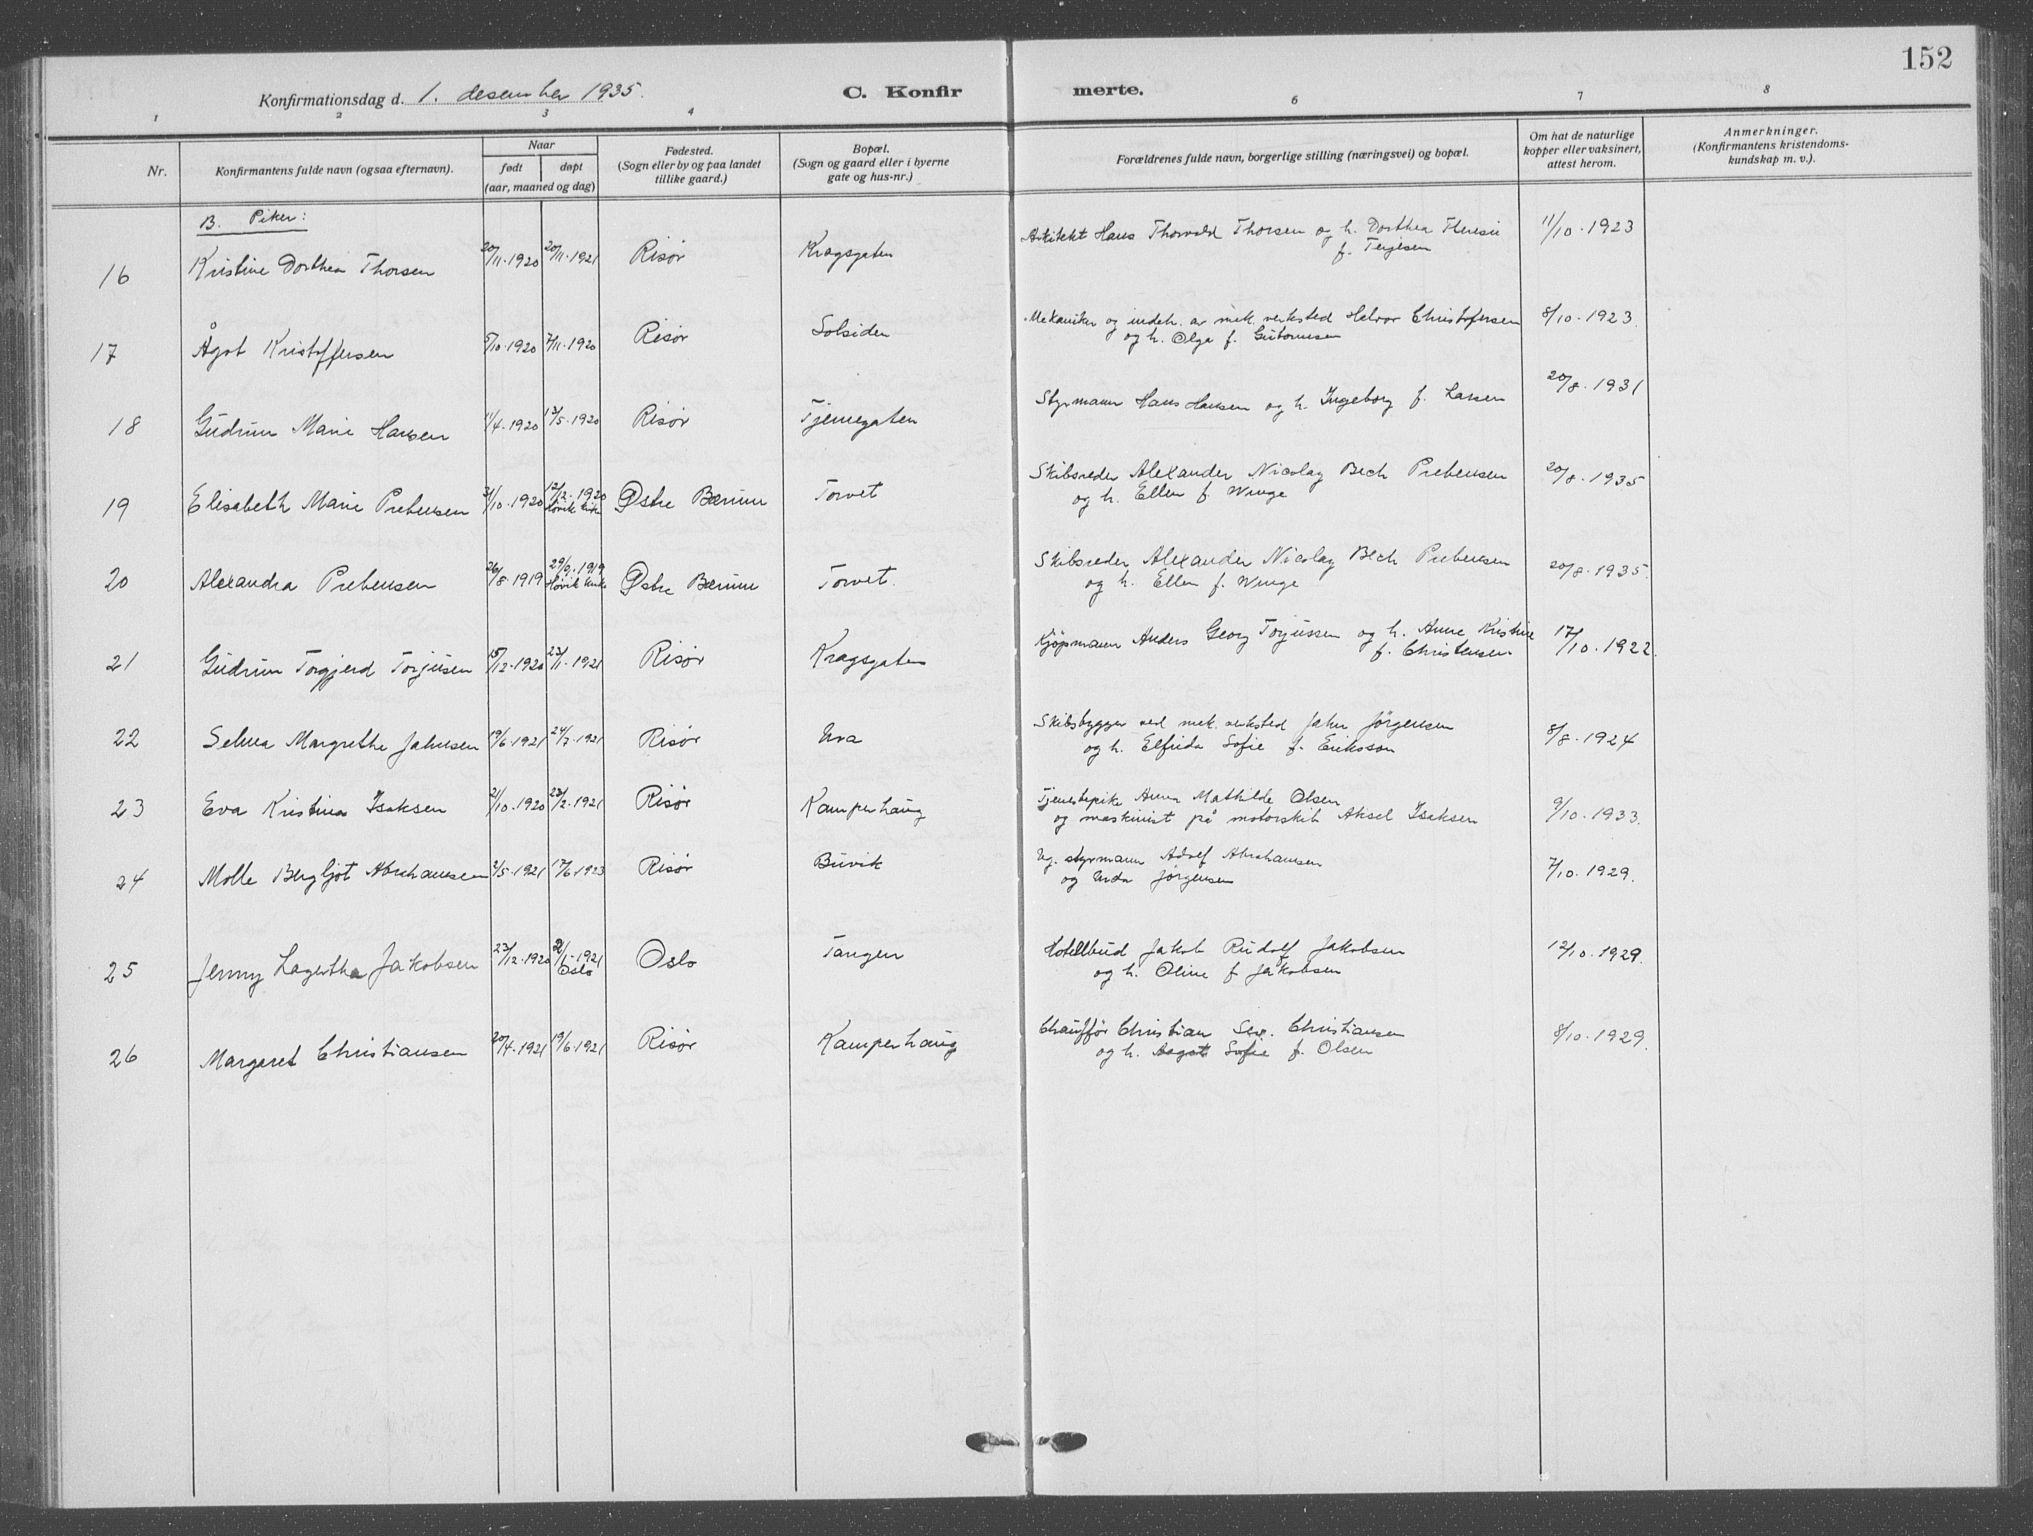 152
Konfirmationsdag d. 1. desember 1935.
C. Konfirmerte.
1 2 3 4 6 7 8
Nr.
Konfirmantens fulde navn (ogsaa efternavn).
Naar
født døpt
(aar, maaned og dag)
Fødested.
(Sogn eller by og paa landet
tillike gaard.)
Bopæl.
(Sogn og gaard eller i byerne
gate og hus-nr.)
Forældrenes fulde navn, borgerlige stilling (næringsvei) og bopæl.
Om hat de naturlige
kopper eller vaksinert,
attest herom.
Anmerkninger.
(Konfirmantens kristendoms-
kundskap m. v.).
B. Piker:
16 Kristine Dorthea Thorsen 20/11.1920 20/11.1921 Risør Kragsgaten Arkitekt Hans Thorvald Thorsen og h. Dorthea Theresie 11/10.1923
f. Terjesen
17 Ågot Kristoffersen 5/10.1920 7/11.1920 Risør Solsiden Mekaniker og indeh. av mek. verksted Halvor Christofersen 8/10.1923.
og h. Olga f. Guttormsen
18 Gudrun Marie Hansen 11/4.1920 13/5.1920 Risør Tjennegaten Styrmann Hans Hansen og h. Ingeborg f. Larsen 20/8.1931
19 Elisabeth Marie Prebensen 31/10.1920 12/12.1920 Østre Bærum Torvet Skibsreder Alexander Nicolay Bech Prebensen 20/8.1935
Høvik kirke og h. Ellen f. Winge
20 Alexandra Prebensen 26/8.1919 29/9.1919 Østre Bærum Torvet. Skibsreder Alexander Nicolay Bech Prebensen 20/8.1935.
Høvik kirke og h. Ellen f. Winge
21 Gudrun Torgjerd Torjusen 15/12.1920 23/1.1921 Risør Kragsgaten Kjøpmann Anders Georg Torjussen og h. Anne Kristine 17/10.1922.
f. Christensen
22 Selma Margrethe Jahnsen 19/6.1921 24/7.1921 Risør Urа Skibsbygger ved mek. verksted Jahn Jörgensen 8/8.1924
og h. Elfrida Sofie f. Eriksson
23 Eva Kristina Isaksen 21/10.1920 23/2.1921 Risør Kamperhaug Tjenestepike Anna Mathilde Olsen 9/10.1933.
og maskinist på motorskib Aksel Isaksen
24 Molle Bergljot Abrahamsen 2/5.1921 17/6.1923 Risør Buvik Ug. styrmann Adolf Abrahamsen 7/10.1929.
og Jørgensen
25 Jenny Lagertha Jakobsen 23/12.1920 1921 Oslo Tangen Hotellbud Jakob Rudolf Jakobsen 12/10.1929.
Oslo og h. Oline f. Jakobsen
26 Margaret Christiansen 20/4.1921 19/6.1921 Risør Kamperhaug Chauffør Christian Sev. Christiansen 8/10.1929.
og h. Aagot Sofie f. Olsen